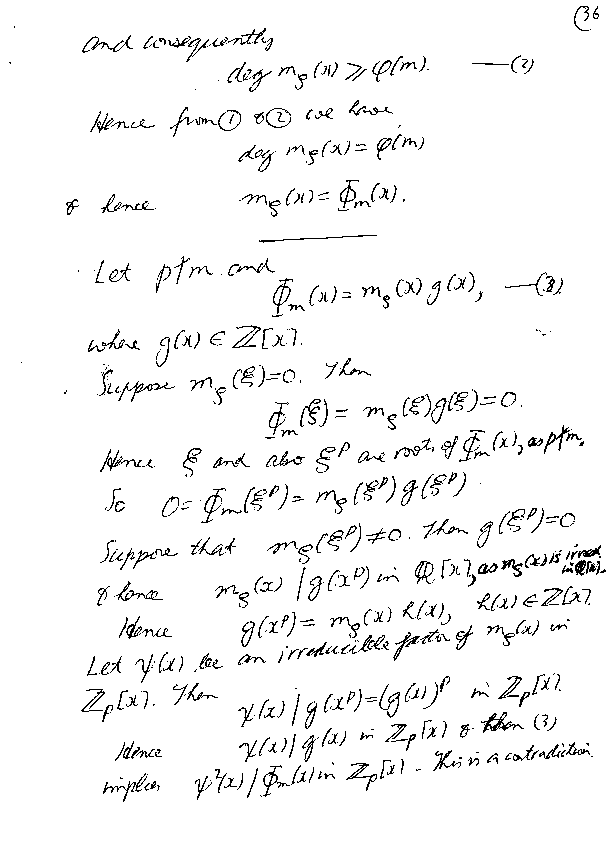 36
and consequently
deg m_ρ(x) ⩾ φ(m). —(2)
Hence from ① & ② we have
deg m_ρ(x) = φ(m)
& hence m_ρ(x) = Φ_m(x).
Let p∤m and
Φ_m(x) = m_ρ(x) g(x), —(3)
where g(x) ∈ ℤ[x].
Suppose m_ρ(ξ)=0. Then
Φ_m(ξ) = m_ρ(ξ)g(ξ)=0.
Hence ξ and also ξ^p are roots of Φ_m(x), as p∤m.
So 0 = Φ_m(ξ^p) = m_ρ(ξ^p) g(ξ^p)
Suppose that m_ρ(ξ^p) ≠ 0. Then g(ξ^p)=0
& hence m_ρ(x) | g(x^p) in ℚ[x], as m_ρ(x) is irred in ℚ[x].
Hence g(x^p) = m_ρ(x) h(x), h(x) ∈ ℤ[x].
Let ψ(x) be an irreducible factor of m_ρ(x) in
ℤ_p[x]. Then ψ(x) | g(x^p) = (g(x))^p in ℤ_p[x].
Hence ψ(x) | g(x) in ℤ_p[x] & then (3)
implies ψ²(x) | Φ_m(x) in ℤ_p[x] - This is a contradiction.